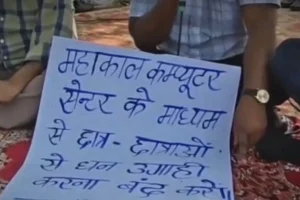 महाकाल कम्प्यूटर
सेन्टर के माध्यम
से छात्र - छात्राओं
से धन उगाही
करना बंद करें॥